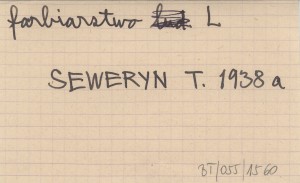 farbiarstwo L
SEWERYN T. 1938a
BT/055/1560